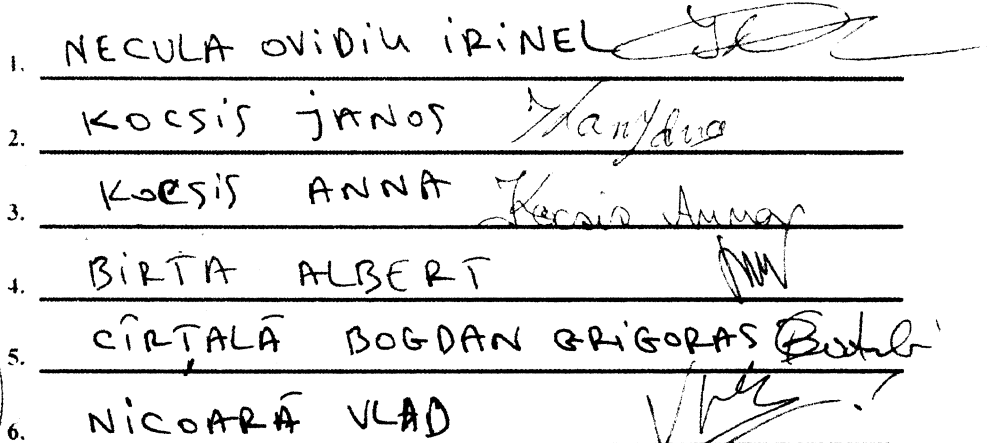 1. NECULA OVIDIU IRINEL
2. KOCSIS JANOS
3. KOCSIS ANNA Kocsis Anna
4. BIRTA ALBERT
5. CÎRȚALĂ BOGDAN GRIGORAȘ
6. NICOARĂ VLAD